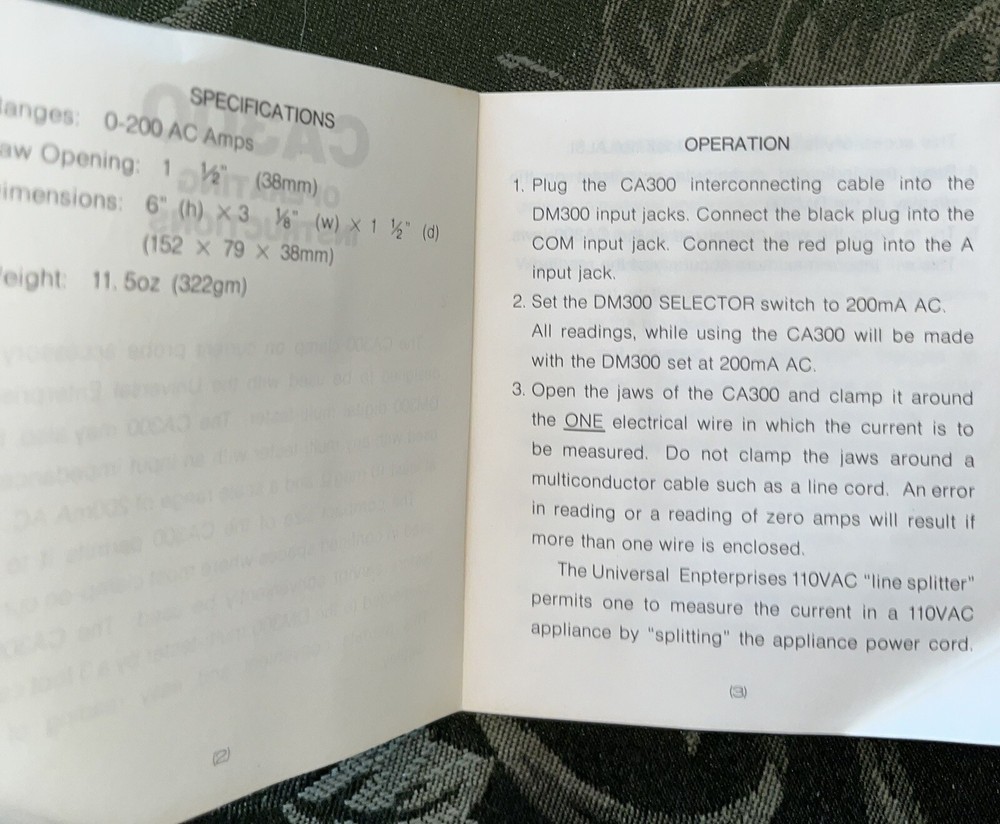 SPECIFICATIONS
anges: 0-200 AC Amps
aw Opening: 1 ½" (38mm)
imensions: 6" (h) × 3 ⅛" (w) × 1 ½" (d)
(152 × 79 × 38mm)
eight: 11.5oz (322gm)
(2)
OPERATION
1. Plug the CA300 interconnecting cable into the
DM300 input jacks. Connect the black plug into the
COM input jack. Connect the red plug into the A
input jack.
2. Set the DM300 SELECTOR switch to 200mA AC.
All readings, while using the CA300 will be made
with the DM300 set at 200mA AC.
3. Open the jaws of the CA300 and clamp it around
the ONE electrical wire in which the current is to
be measured. Do not clamp the jaws around a
multiconductor cable such as a line cord. An error
in reading or a reading of zero amps will result if
more than one wire is enclosed.
The Universal Enpterprises 110VAC "line splitter"
permits one to measure the current in a 110VAC
appliance by "splitting" the appliance power cord.
(3)